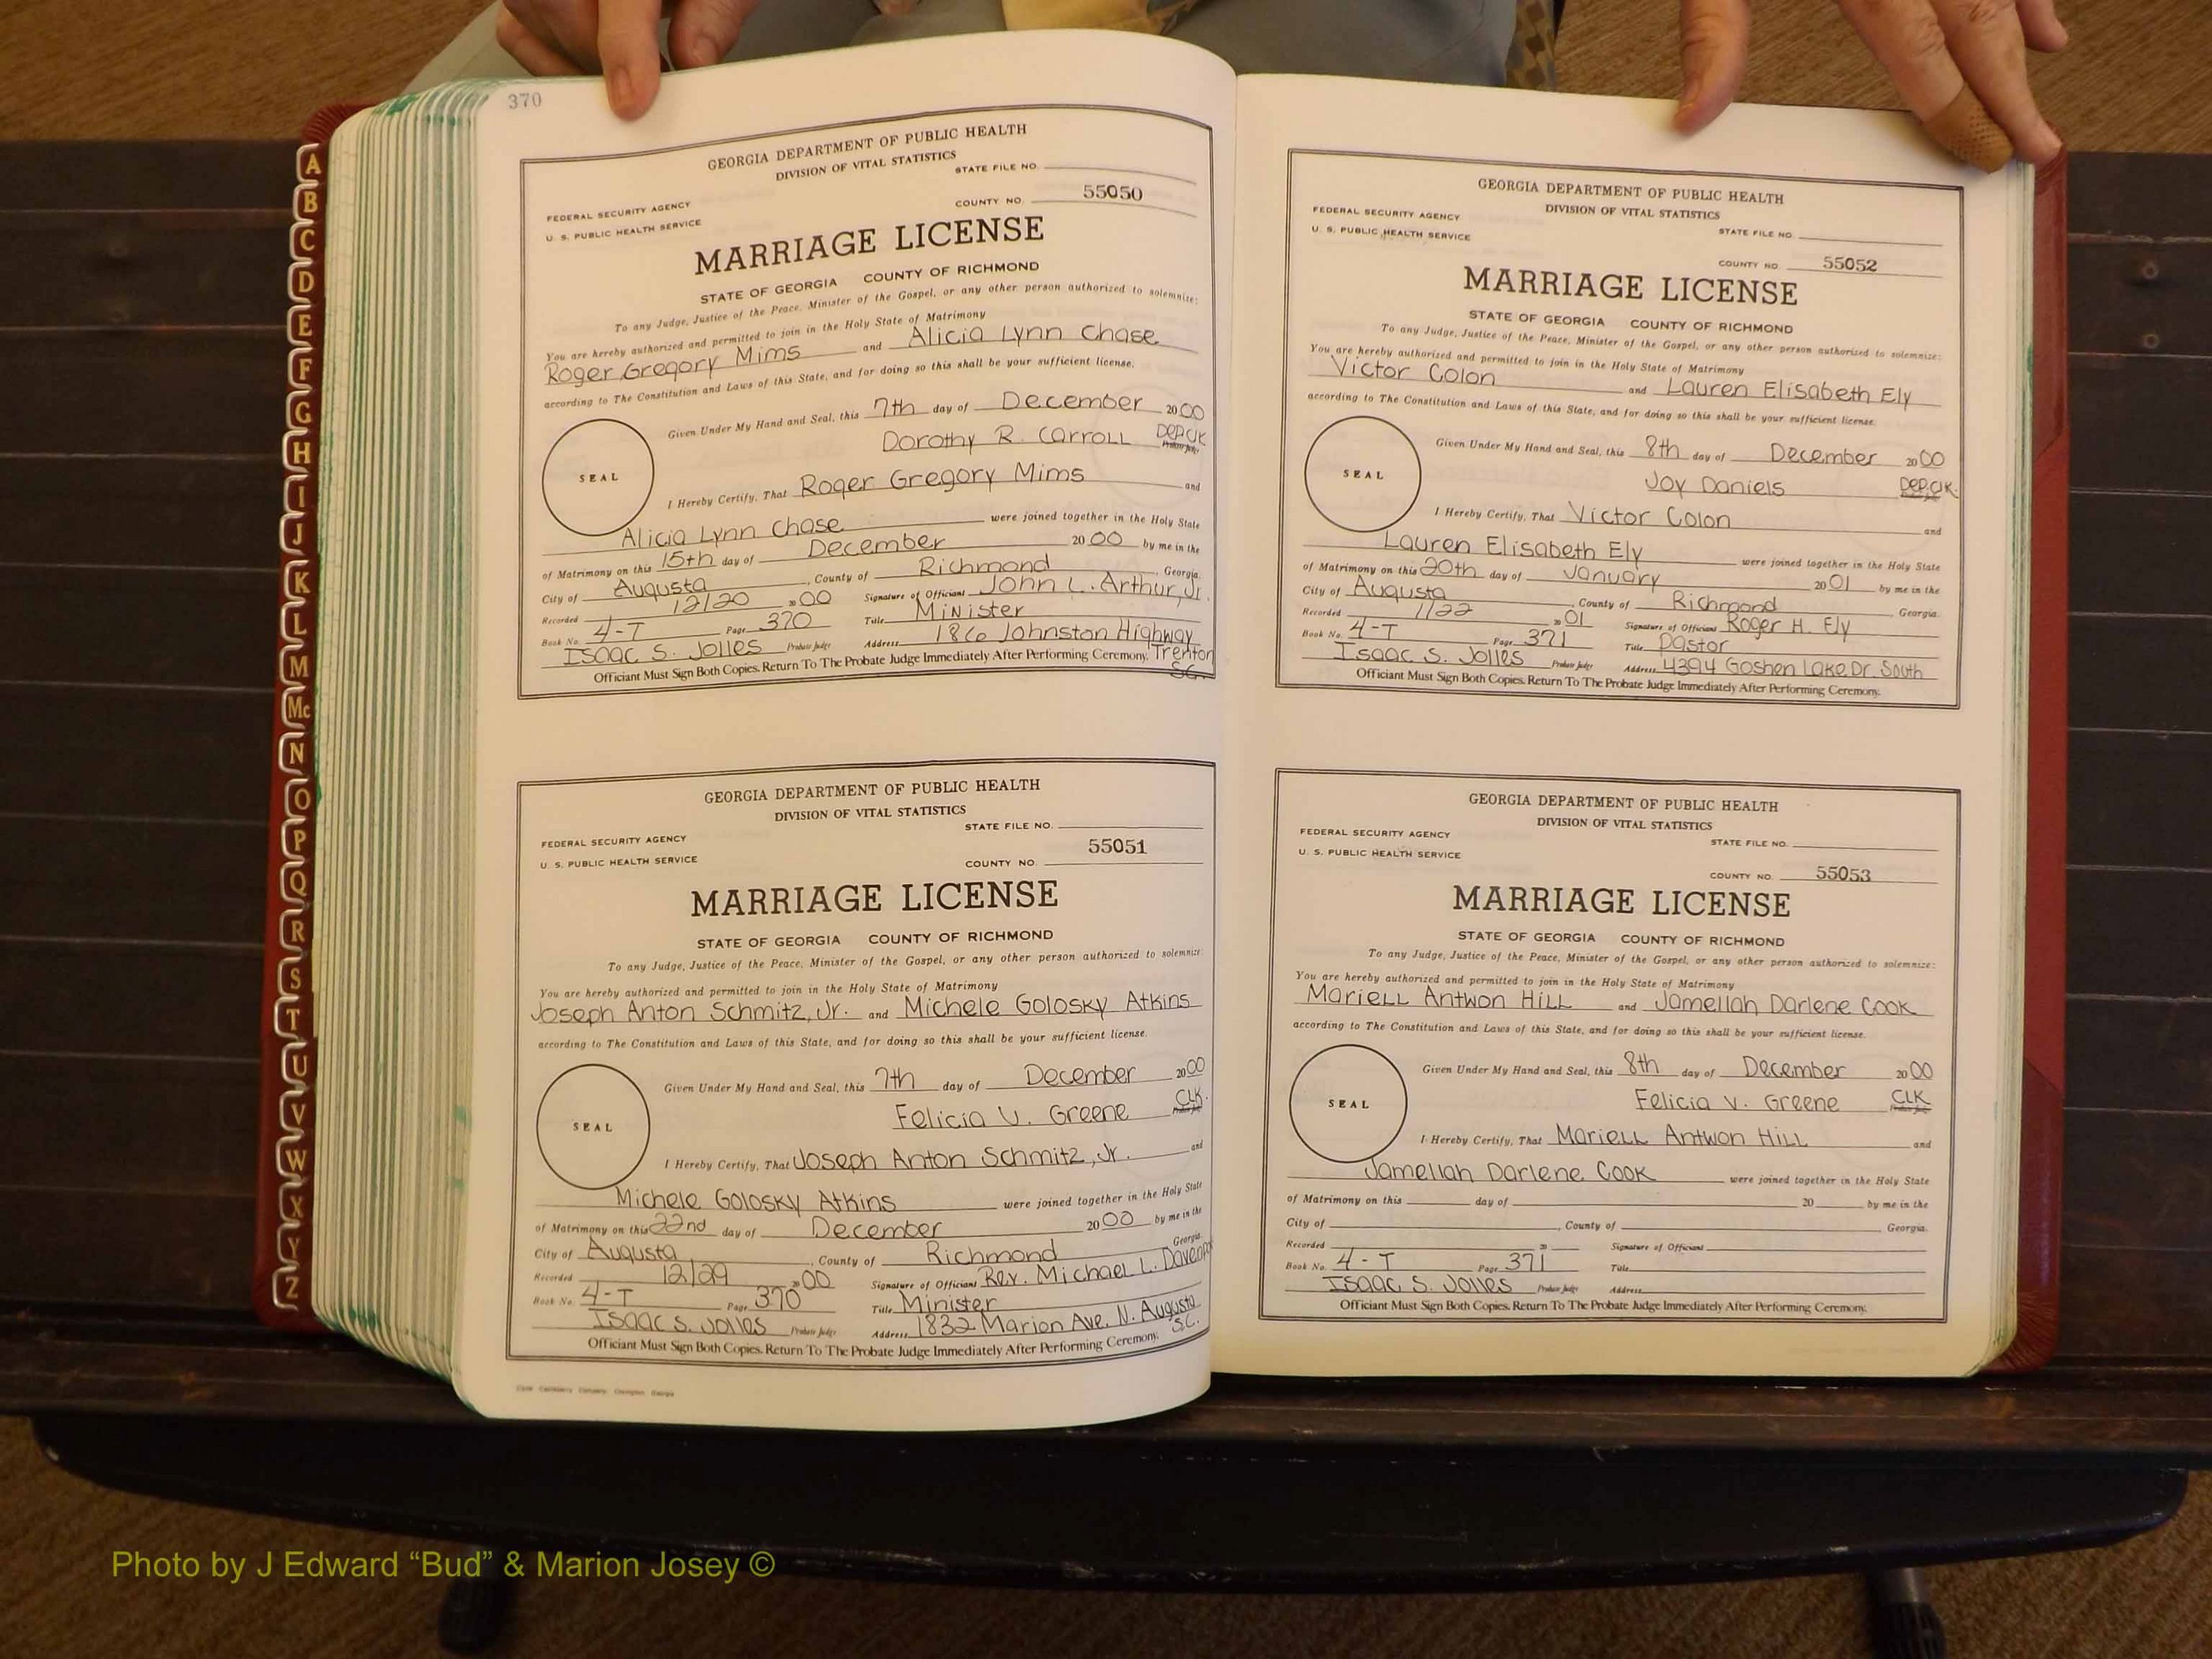 370
GEORGIA DEPARTMENT OF PUBLIC HEALTH
DIVISION OF VITAL STATISTICS
STATE FILE NO.
FEDERAL SECURITY AGENCY
COUNTY NO. 55050
U. S. PUBLIC HEALTH SERVICE
MARRIAGE LICENSE
STATE OF GEORGIA COUNTY OF RICHMOND
To any Judge, Justice of the Peace, Minister of the Gospel, or any other person authorized to solemnize:
You are hereby authorized and permitted to join in the Holy State of Matrimony
Roger Gregory Mims and Alicia Lynn Chase
according to The Constitution and Laws of this State, and for doing so this shall be your sufficient license.
Given Under My Hand and Seal, this 7th day of December 2000
Dorothy R. Carroll Dep. Clk
Probate Judge
SEAL
I Hereby Certify, That Roger Gregory Mims and
Alicia Lynn Chase were joined together in the Holy State
of Matrimony on this 15th day of December 20 00 by me in the
City of Augusta, County of Richmond, Georgia.
Recorded 12/20 2000 Signature of Officiant John L. Arthur, Jr.
Book No. 4-T Page 370 Title Minister
Isaac S. Jolles Probate Judge Address 186 Johnston Highway Trenton SC.
Officiant Must Sign Both Copies. Return To The Probate Judge Immediately After Performing Ceremony.
GEORGIA DEPARTMENT OF PUBLIC HEALTH
DIVISION OF VITAL STATISTICS
STATE FILE NO.
FEDERAL SECURITY AGENCY
COUNTY NO. 55051
U. S. PUBLIC HEALTH SERVICE
MARRIAGE LICENSE
STATE OF GEORGIA COUNTY OF RICHMOND
To any Judge, Justice of the Peace, Minister of the Gospel, or any other person authorized to solemnize:
You are hereby authorized and permitted to join in the Holy State of Matrimony
Joseph Anton Schmitz, Jr. and Michele Golosky Atkins
according to The Constitution and Laws of this State, and for doing so this shall be your sufficient license.
Given Under My Hand and Seal, this 7th day of December 2000
Felicia V. Greene CLK.
Probate Judge
SEAL
I Hereby Certify, That Joseph Anton Schmitz, Jr. and
Michele Golosky Atkins were joined together in the Holy State
of Matrimony on this 22nd day of December 20 00 by me in the
City of Augusta, County of Richmond Georgia.
Recorded 12/29 2000 Signature of Officiant Rev. Michael L.
Book No. 4-T Page 370 Title Minister
Isaac S. Jolles Probate Judge Address 1832 Marion Ave. N. Augusta S.C.
Officiant Must Sign Both Copies. Return To The Probate Judge Immediately After Performing Ceremony.
GEORGIA DEPARTMENT OF PUBLIC HEALTH
DIVISION OF VITAL STATISTICS
FEDERAL SECURITY AGENCY
STATE FILE NO.
U. S. PUBLIC HEALTH SERVICE
COUNTY NO. 55052
MARRIAGE LICENSE
STATE OF GEORGIA COUNTY OF RICHMOND
To any Judge, Justice of the Peace, Minister of the Gospel, or any other person authorized to solemnize:
You are hereby authorized and permitted to join in the Holy State of Matrimony
Victor Colon and Lauren Elisabeth Ely
according to The Constitution and Laws of this State, and for doing so this shall be your sufficient license.
Given Under My Hand and Seal, this 8th day of December 2000
Joy Daniels Dep. Clk.
Probate Judge
SEAL
I Hereby Certify, That Victor Colon and
Lauren Elisabeth Ely were joined together in the Holy State
of Matrimony on this 20th day of January 20 01 by me in the
City of Augusta, County of Richmond, Georgia.
Recorded 1/22 2001 Signature of Officiant Roger H. Ely
Book No. 4-T Page 371 Title Pastor
Isaac S. Jolles Probate Judge Address 4394 Goshen Lake Dr. South
Officiant Must Sign Both Copies. Return To The Probate Judge Immediately After Performing Ceremony.
GEORGIA DEPARTMENT OF PUBLIC HEALTH
DIVISION OF VITAL STATISTICS
FEDERAL SECURITY AGENCY
STATE FILE NO.
U. S. PUBLIC HEALTH SERVICE
COUNTY NO. 55053
MARRIAGE LICENSE
STATE OF GEORGIA COUNTY OF RICHMOND
To any Judge, Justice of the Peace, Minister of the Gospel, or any other person authorized to solemnize:
You are hereby authorized and permitted to join in the Holy State of Matrimony
Mariell Antwon Hill and Jamellah Darlene Cook
according to The Constitution and Laws of this State, and for doing so this shall be your sufficient license.
Given Under My Hand and Seal, this 8th day of December 2000
Felicia V. Greene CLK
Probate Judge
SEAL
I Hereby Certify, That Mariell Antwon Hill and
Jamellah Darlene Cook were joined together in the Holy State
of Matrimony on this day of 20 by me in the
City of , County of Georgia.
Recorded 20 Signature of Officiant
Book No. 4-T Page 371 Title
Isaac S. Jolles Probate Judge Address
Officiant Must Sign Both Copies. Return To The Probate Judge Immediately After Performing Ceremony.
A
B
C
D
E
F
G
H
I
J
K
L
M
Mc
N
O
P
Q
R
S
T
U
V
W
X
Y
Z
Photo by J Edward “Bud” & Marion Josey ©